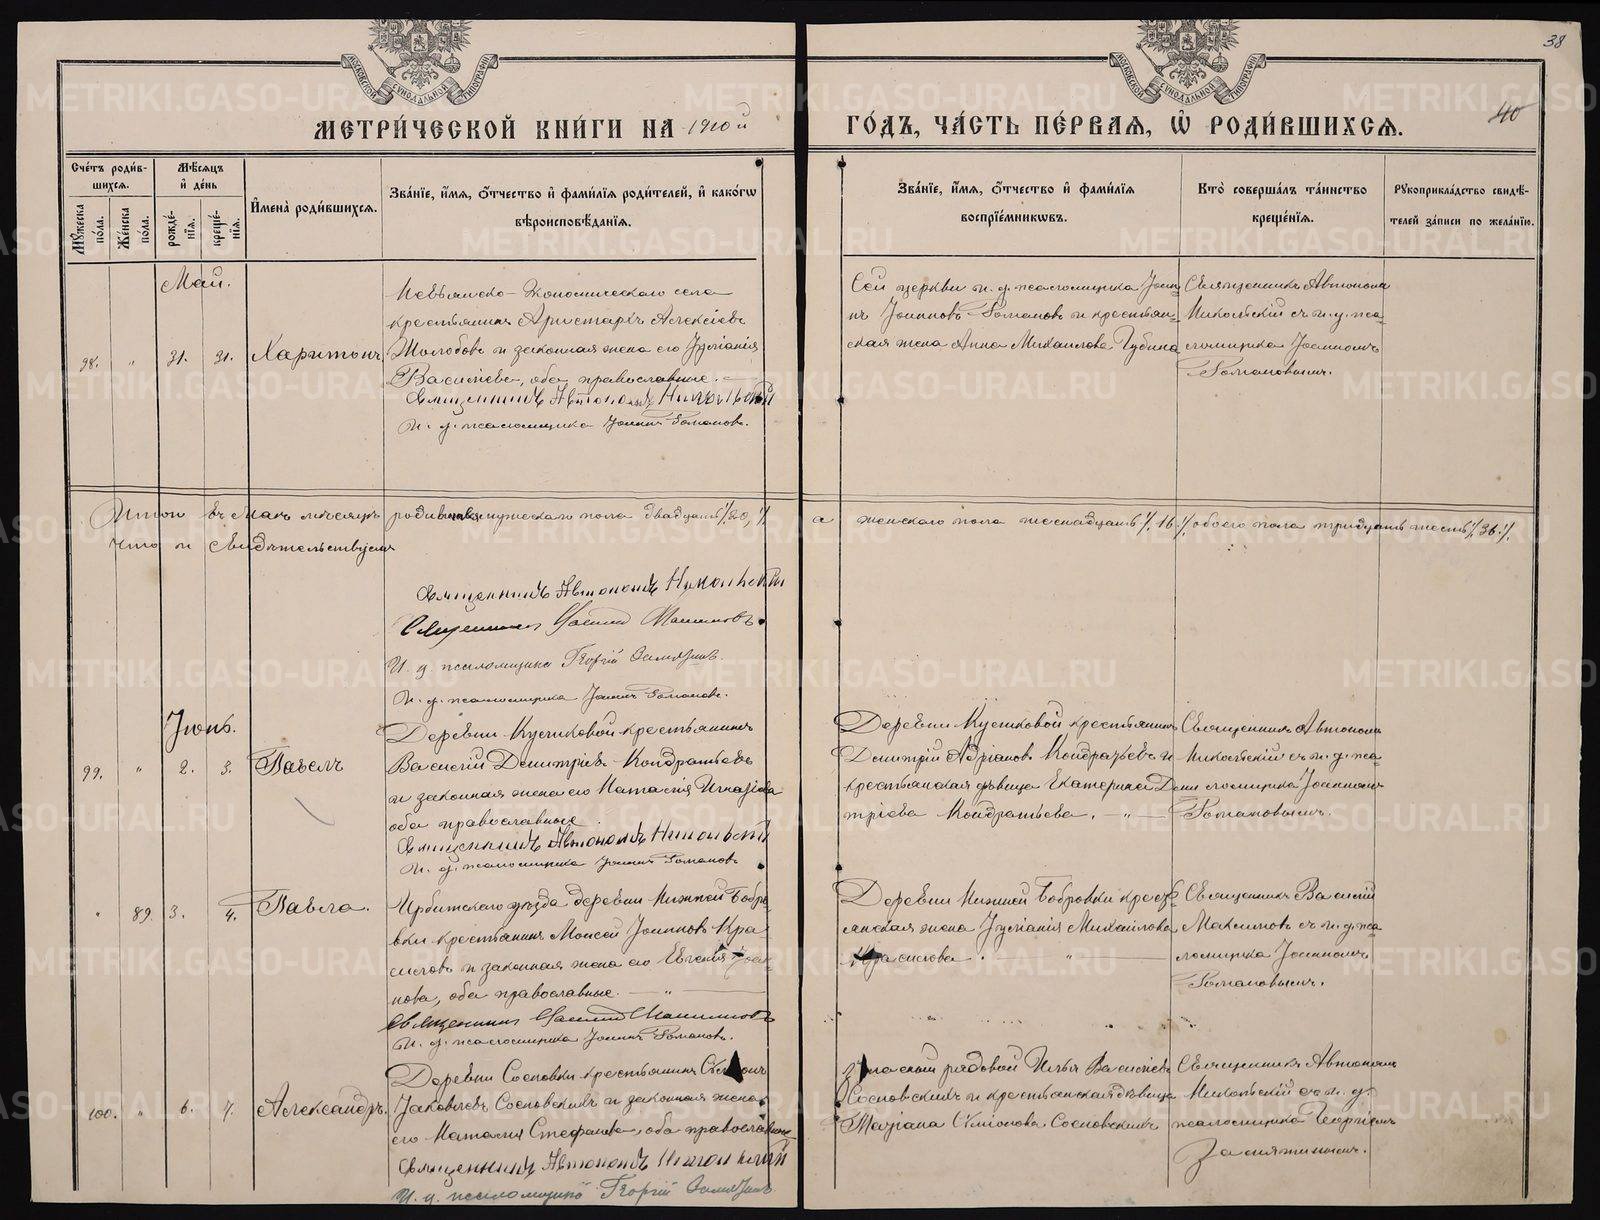 МЕТРИ́ЧЕСКОЙ КНИ́ГИ НА 1910й
ГО́ДЪ, ЧА́СТЬ ПЕ́РВАЯ, Ѽ РОДИ́ВШИХСЯ.
38
40
Сче́тъ роди́в-
шихся.
Мѣсяцъ
и҆ де́нь
Мꙋжеска
по́ла.
Же́нска
по́ла.
рожде́-
нїя.
креще́-
нїя.
И҆мена̀ роди́вшихся.
Зва́нїе, и҆́мя, ѻ҆́тчество и҆ фами́лїя роди́телей, и҆ како́гѡ
вѣроисповѣ́данїя.
Зва́нїе, и҆́мя, ѻ҆́тчество и҆ фами́лїя
воспрїе́мникѡвъ.
Кто̀ соверша́лъ та́инство
креще́нїя.
Рꙋкоприкла́дство свидѣ́-
телей за́писи по жела́нїю.
Май.
98. " 31. 31. Харитонъ.
Невьянско-Экономическаго села
крестьянинъ Аристархъ Алексіевъ
Жолобовъ и законная жена его Іуліанія
Васильева, оба православные.
Священникъ Автономъ Никольскій
И. д. псаломщика Іоаннъ Романовъ.
Сей церкви и. д. псаломщика Іоан-
нъ Іоанновъ Романовъ и крестьян-
ская жена Анна Михаилова Губина
Священникъ Автономъ
Никольскій съ и. д. пса-
ломщика Іоанномъ
Романовымъ.
Итого въ Маѣ мѣсяцѣ родившихся мужескаго пола двадцать /20/, а женскаго пола шестнадцать /16/, обоего пола тридцать шесть /36/.
Что и свидѣтельствуемъ
Священникъ Автономъ Никольскій
Священникъ Василій Максимовъ.
И. д. псаломщика Георгій
И. д. псаломщика Іоаннъ Романовъ.
Іюнь.
99. " 2. 3. Павелъ
Деревни Кусиковой крестьянинъ
Василій Димитріевъ Кондратьевъ
и законная жена его Наталія Игнатіева
оба православные.
Священникъ Автономъ Никольскій
И. д. псаломщика Іоаннъ Романовъ
Деревни Кусиковой крестьянинъ
Димитрій Адріановъ Кондратьевъ и
крестьянская дѣвица Екатерина Дими-
тріева Кондратьева. "
Священникъ Автономъ
Никольскій съ и. д. пса-
ломщика Іоанномъ
Романовымъ.
" 89. 3. 4. Павла.
Ирбитскаго уѣзда деревни Нижней Бобро-
вки крестьянинъ Моисей Іоанновъ Кра-
силовъ и законная жена его Евгенія Іоан-
нова, оба православные. "
Священникъ Василій Максимовъ
И. д. псаломщика Іоаннъ Романовъ.
Деревни Нижней Бобровки кресть-
янская жена Іуліанія Михаилова
Красилова. "
Священникъ Василій
Максимовъ съ и. д. пса-
ломщика Іоанномъ
Романовымъ.
100. " 6. 7. Александръ.
Деревни Сосновки крестьянинъ Симеонъ
Іаковлевъ Сосновскихъ и законная жена
его Наталія Стефанова, оба православные
Священникъ Автономъ Никольскій
И. д. псаломщика Георгій
рядовой Илья Васильевъ
Сосновскихъ и крестьянская дѣвица
Маріана Симеонова Сосновскихъ
Священникъ Автономъ
Никольскій съ и. д.
псаломщика Георгіемъ
METRIKI.GASO-URAL.RU